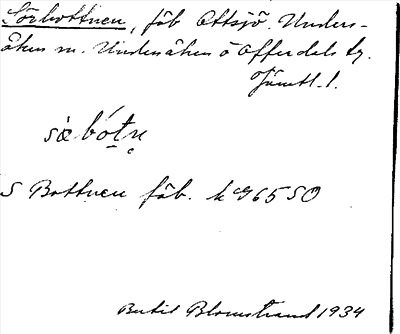 Sörbottnen, fäb Ottsjö. Unders-
åkers sn. Undersåkers o Offerdals tg.
Jämtl. l.
sœ̀ bót̲n̥
S Bottnen fäb. k G65SO
Bertil Blomstrand 1934